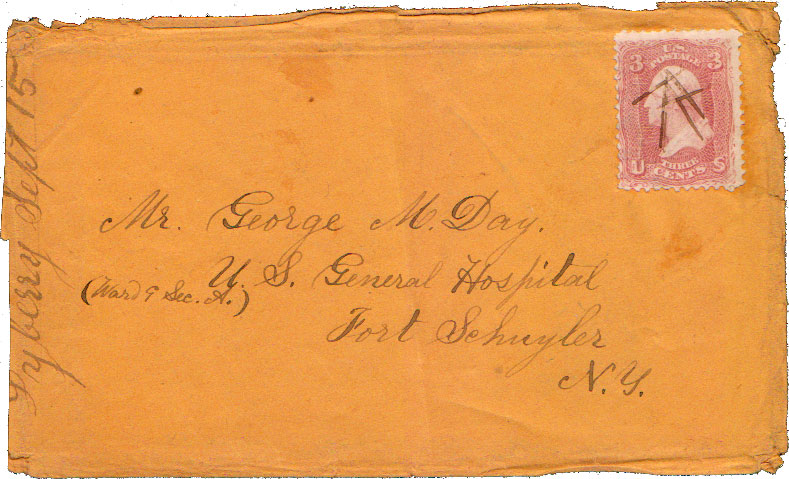 Dyberry Sept 15
U.S.
POSTAGE
3 3
U S
THREE
CENTS
Mr. George M. Day.
U. S. General Hospital
(Ward 9 Sec. A.)
Fort Schuyler
N.Y.